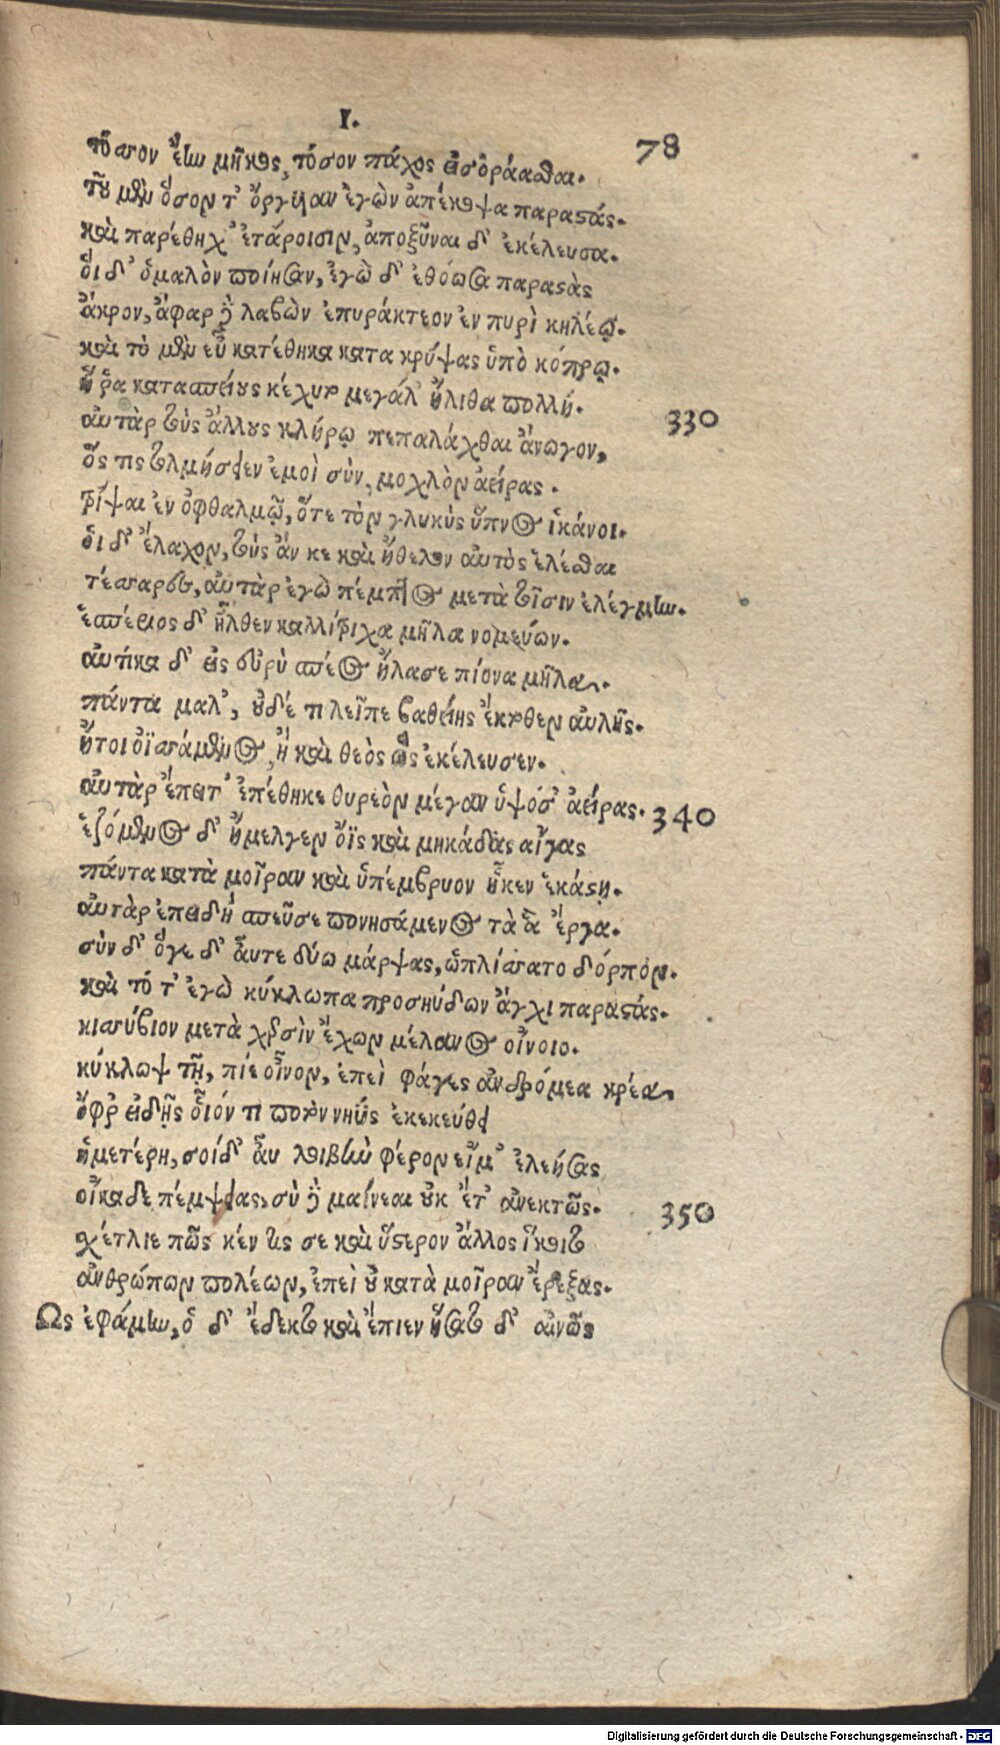 I.
78
τόσσον ἔην μῆκος, τόσον πάχος εἰσοράασθαι.
τοῦ μὲν ὅσον τ' ὄργυιαν ἐγὼν ἀπέκοψα παραστάς.
καὶ παρέθηχ' ἑτάροισιν, ἀποξῦναι δ' ἐκέλευσα.
οἱ δ' ὁμαλὸν ποίησαν, ἐγὼ δ' ἐθόωσα παραστὰς
ἄκρον, ἄφαρ δὲ λαβὼν ἐπυράκτεον ἐν πυρὶ κηλέῳ.
καὶ τὸ μὲν εὖ κατέθηκα κατακρύψας ὑπὸ κόπρῳ.
ἥ ῥα κατὰ σπείους κέχυτο μεγάλ' ἤλιθα πολλή.
330
αὐτὰρ τοὺς ἄλλους κλήρῳ πεπαλάχθαι ἄνωγον,
ὅς τις τολμήσειεν ἐμοὶ σὺν, μοχλὸν ἀείρας.
τρίψαι ἐν ὀφθαλμῷ, ὅτε τὸν γλυκὺς ὕπνος ἱκάνοι.
οἱ δ' ἔλαχον, τοὺς ἄν κε καὶ ἤθελον αὐτὸς ἑλέσθαι
τέσσαρες, αὐτὰρ ἐγὼ πέμπτος μετὰ τοῖσιν ἐλέγμην.
ἑσπέριος δ' ἦλθεν καλλίτριχα μῆλα νομεύων.
αὐτίκα δ' εἰς εὐρὺ σπέος ἤλασε πίονα μῆλα.
πάντα μαλ', οὐδέ τι λεῖπε βαθείης ἔκτοθεν αὐλῆς.
ἤτοι ὀϊσσάμενος, ἢ καὶ θεὸς ὣς ἐκέλευσεν.
αὐτὰρ ἔπειτ' ἐπέθηκε θυρεὸν μέγαν ὑψόσ' ἀείρας.
340
ἑζόμενος δ' ἤμελγεν ὄϊς καὶ μηκάδας αἶγας
πάντα κατὰ μοῖραν καὶ ὑπέμβρυον ἧκεν ἑκάστῃ.
αὐτὰρ ἐπειδὴ σπεῦσε πονησάμενος τὰ ἃ ἔργα.
σὺν δ' ὅγε δ' αὖτε δύω μάρψας, ὡπλίσσατο δόρπον.
καὶ τό τ' ἐγὼ κύκλωπα προσηύδων ἄγχι παραστάς.
κισσύβιον μετὰ χερσὶν ἔχων μέλανος οἴνοιο.
κύκλωψ τῆ, πίε οἶνον, ἐπεὶ φάγες ἀνδρόμεα κρέα,
ὄφρ' εἰδῇς οἷόν τι ποτὸν νηῦς ἐκεκεύθει
ἡμετέρη, σοὶ δ' αὖ λοιβὴν φέρον εἴμ' ἐλεήσας
οἴκαδε πέμψειας, σὺ δὲ μαίνεαι οὐκ ἔτ' ἀνεκτῶς.
350
σχέτλιε πῶς κέν τις σε καὶ ὕστερον ἄλλος ἵκοιτο
ἀνθρώπων πολέων, ἐπεὶ οὐ κατὰ μοῖραν ἔρεξας.
Ὣς ἐφάμην, ὁ δ' ἔδεκτο καὶ ἔπιεν ἥσατο δ' αἰνῶς
Digitalisierung gefördert durch die Deutsche Forschungsgemeinschaft - DFG